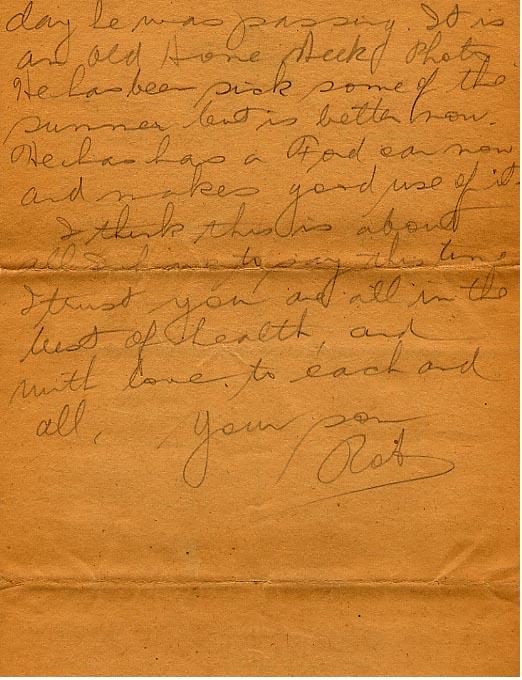 day he was passing. It is
an Old Home Week Photo.
He has been sick some of the
summer but is better now.
He has has a Ford car now
and makes good use of it.
I think this is about
all I have to say this time
I trust you are all in the
best of health, and
with love to each and
all, Your son
Rob